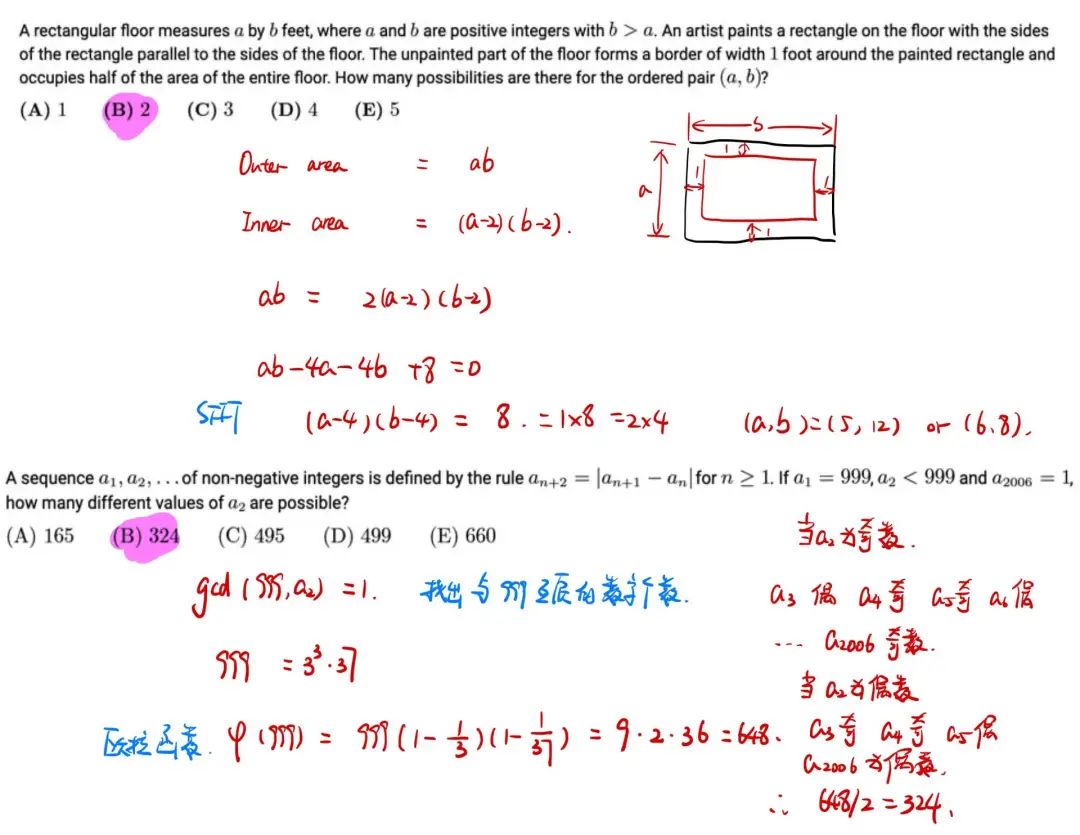 A rectangular floor measures a by b feet, where a and b are positive integers with b > a. An artist paints a rectangle on the floor with the sides
of the rectangle parallel to the sides of the floor. The unpainted part of the floor forms a border of width 1 foot around the painted rectangle and
occupies half of the area of the entire floor. How many possibilities are there for the ordered pair (a, b)?
(A) 1 (B) 2 (C) 3 (D) 4 (E) 5
b
1
a
1
1
1
Outer area = ab
Inner area = (a-2)(b-2).
ab = 2(a-2)(b-2)
ab-4a-4b+8=0
SFFT (a-4)(b-4) = 8. =1×8 =2×4 (a,b)=(5,12) or (6,8).
A sequence a₁, a₂, . . . of non-negative integers is defined by the rule aₙ₊₂ = |aₙ₊₁ − aₙ| for n ≥ 1. If a₁ = 999, a₂ < 999 and a₂₀₀₆ = 1,
how many different values of a₂ are possible?
(A) 165 (B) 324 (C) 495 (D) 499 (E) 660
当a₂为奇数.
gcd(999,a₂)=1. 找出与999互质的数字个数.
a₃偶 a₄奇 a₅奇 a₆偶
... a₂₀₀₆奇数.
999 = 3³·37
当a₂为偶数
欧拉函数. φ(999) = 999(1-1/3)(1-1/37) = 9·2·36=648.
a₃奇 a₄奇 a₅偶
a₂₀₀₆为偶数.
∴ 648/2=324.